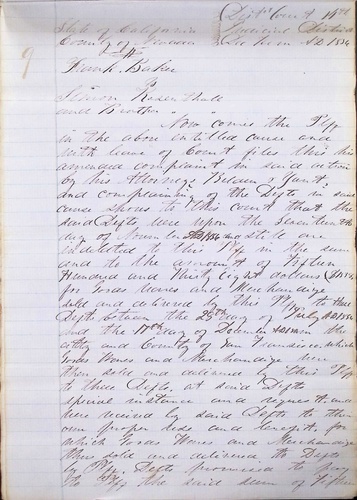 Dist Court 14th
State of California Judicial District
County of Nevada Dec Term AD 1856
9
Frank Baker
vs
Simon Rosenthal
and Brother
Now comes the Plff
in the above entitled cause and
with leave of Court files this his
amended complaint in said action
by his Attorneys Belden &
and complaining of the Defts in said
cause shows to this Court that the
said Defts were upon the Seventeenth
day of AD 1856 and still are
indebted to this Plff in the sum
and to the amount of Fifteen
Hundred and Thirty Eight dollars
for Goods Wares and Merchandize
sold and delivered by this Plff to these
Defts between the 28th day of July AD 1856
and the 17th day of in the
city and County of San Francisco which
Goods Wares and Merchandize were
then sold and delivered by this Plff
to these Defts at said Defts
special instance and request and
were received by said Defts to their
own proper use and benefit, for
which Goods Wares and Merchandize
thus sold and delivered to Defts
by Plff Defts promised to pay
to Plff the said sum of Fifteen